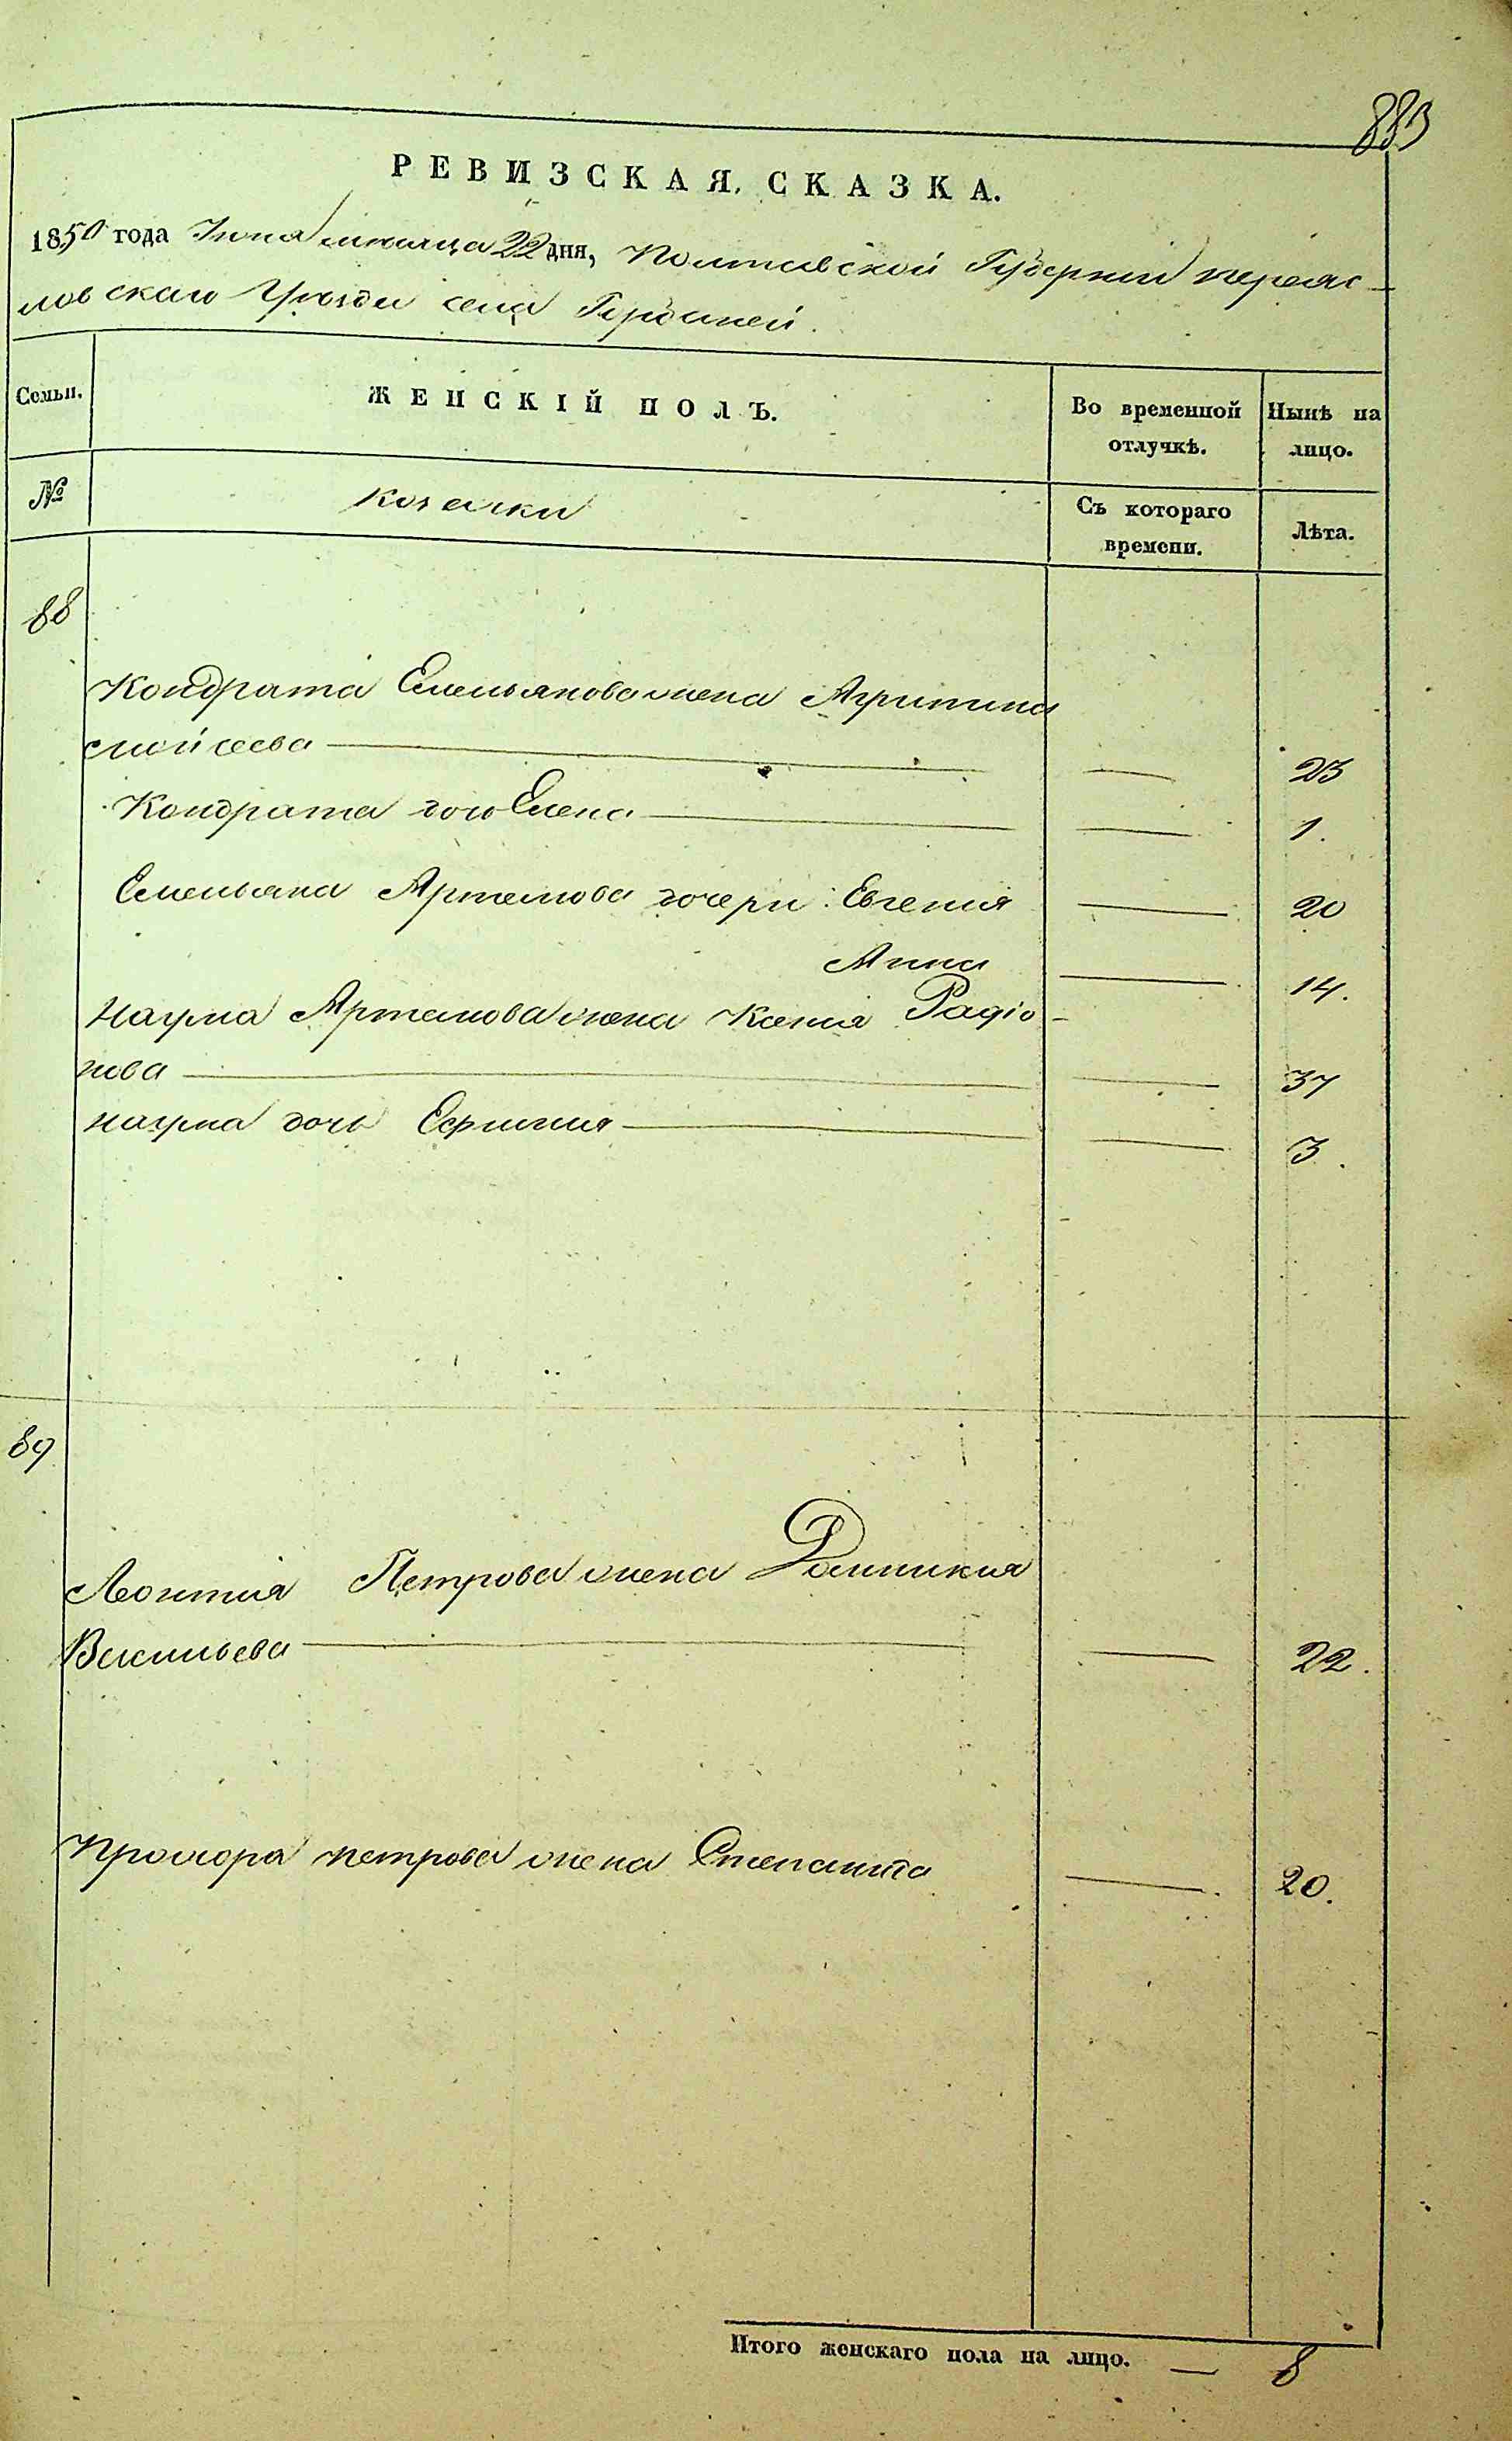 883
РЕВИЗСКАЯ СКАЗКА.
1850 года Іюня мѣсяца 22 дня, Полтавской Губерніи Переяс-
ловскаго Уѣзда села
Семьи.
ЖЕНСКІЙ ПОЛЪ.
Во временной отлучкѣ.
Нынѣ на лицо.
№
Козачки
Съ котораго времени.
Лѣта.
88
Кондрата Емельянова жена Агрипина
Мойсеева — — 23
Кондрата дочь Елена — — 1.
Емельяна Артемова дочери: Евгенія — 20
Анна — 14.
Наума Артемова жена Ксенія Радіо-
нова — — 37
Наума дочь Ефимія — — 3.
89
Леонтія Петрова жена Домникия
Васильева — — 22.
Прохора Петрова жена Степанида — 20.
Итого женскаго пола на лицо. — 8